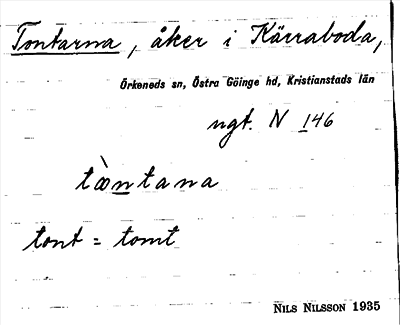 Tontarna, åker i Kärraboda,
Örkeneds sn, Östra Göinge hd, Kristianstads län
ngt. N 146
tòntana
tont = tomt
NILS NILSSON 1935